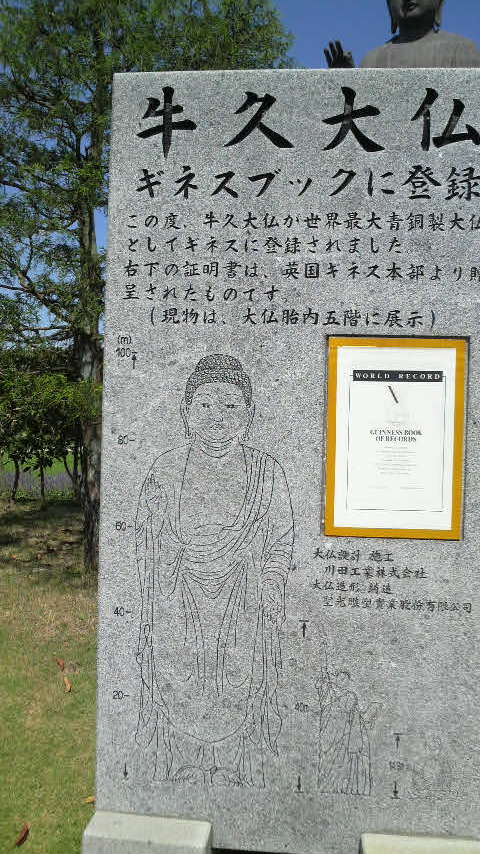 牛久大仏
ギネスブックに登録
この度、牛久大仏が世界最大青銅製大仏
としてギネスに登録されました
右下の証明書は、英国ギネス本部より贈
呈されたものです。
(現物は、大仏胎内五階に展示)
(m)
100
80
60
40
20
WORLD RECORD
GUINNESS BOOK
OF RECORDS
大仏設計 施工
川田工業株式会社
大仏造形 鋳造
40m